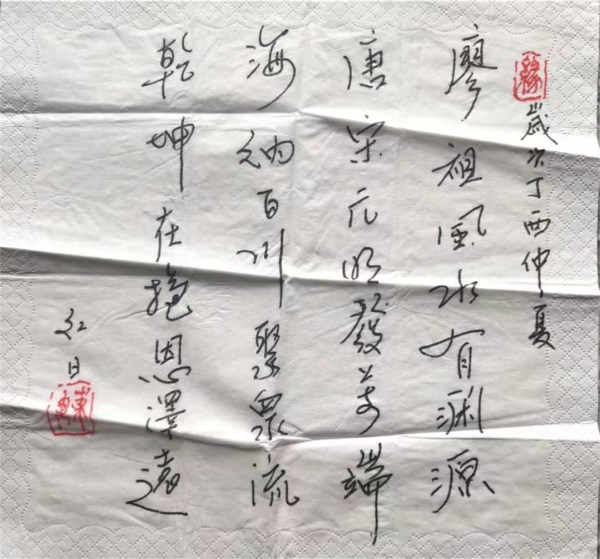 歲次丁酉仲夏
廖祖風水有渊源
唐宋元明發萬端
海纳百川聚眾流
乾坤在抱恩澤遠
红日